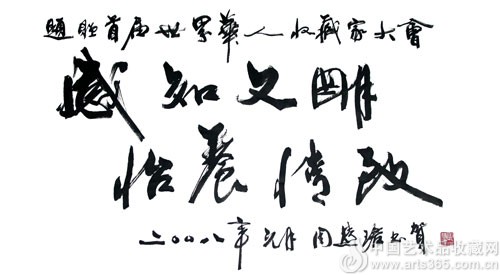 题贈首届世界華人收藏家大會
感知文明
怡養情致
二〇〇八年元月周慧珺书賀
中国艺术品收藏网
www.arts365.com.cn